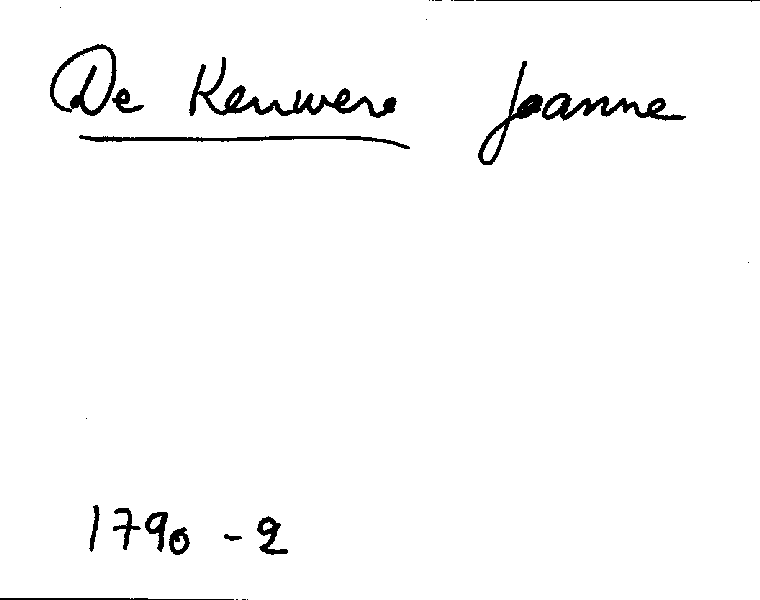 De Keuwere Joanne
1790 - 2